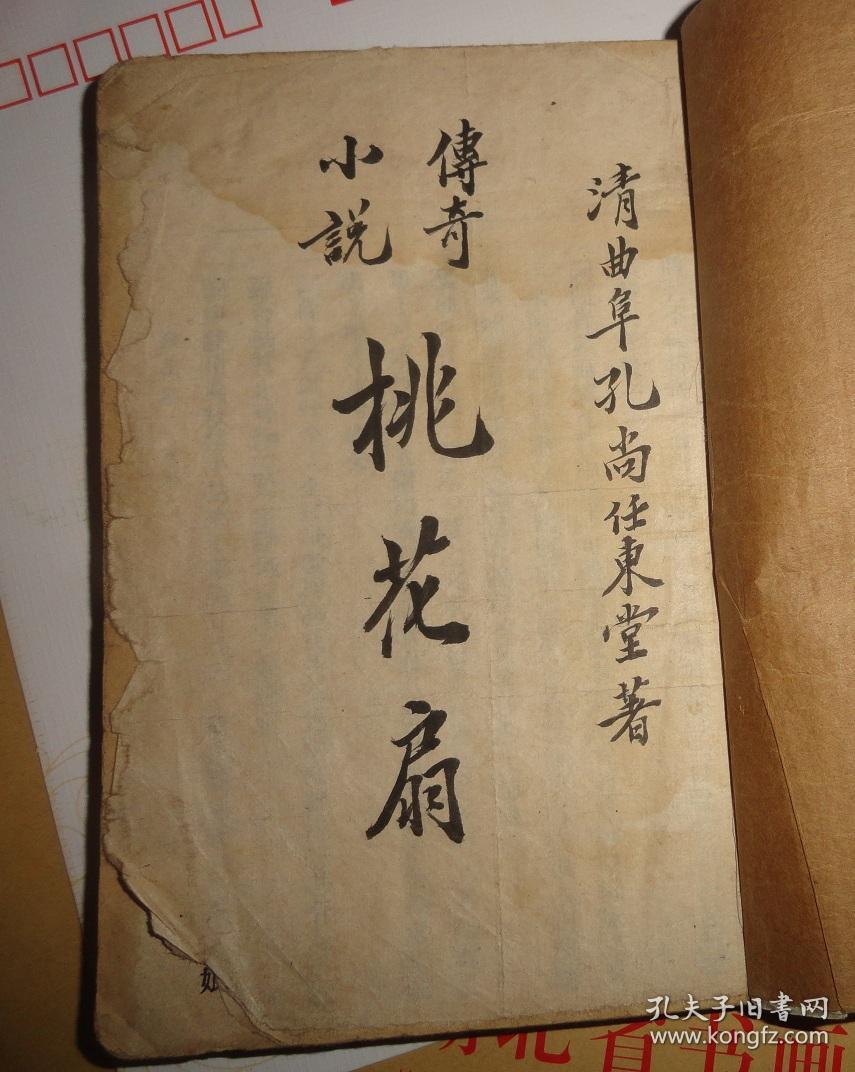 清曲阜孔尚任東堂著
傳奇
小說
桃花扇
孔夫子旧书网
www.kongfz.com
省书画